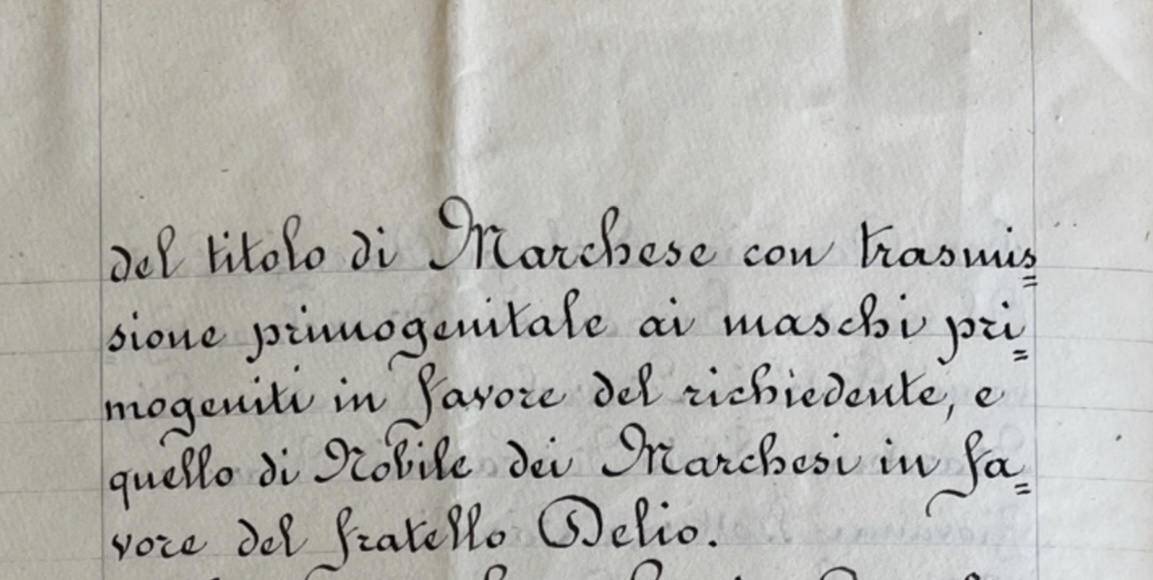 del titolo di Marchese con trasmis=
sione primogenitale ai maschi pri=
mogeniti in favore del richiedente, e
quello di Nobile dei Marchesi in fa=
vore del fratello Delio.